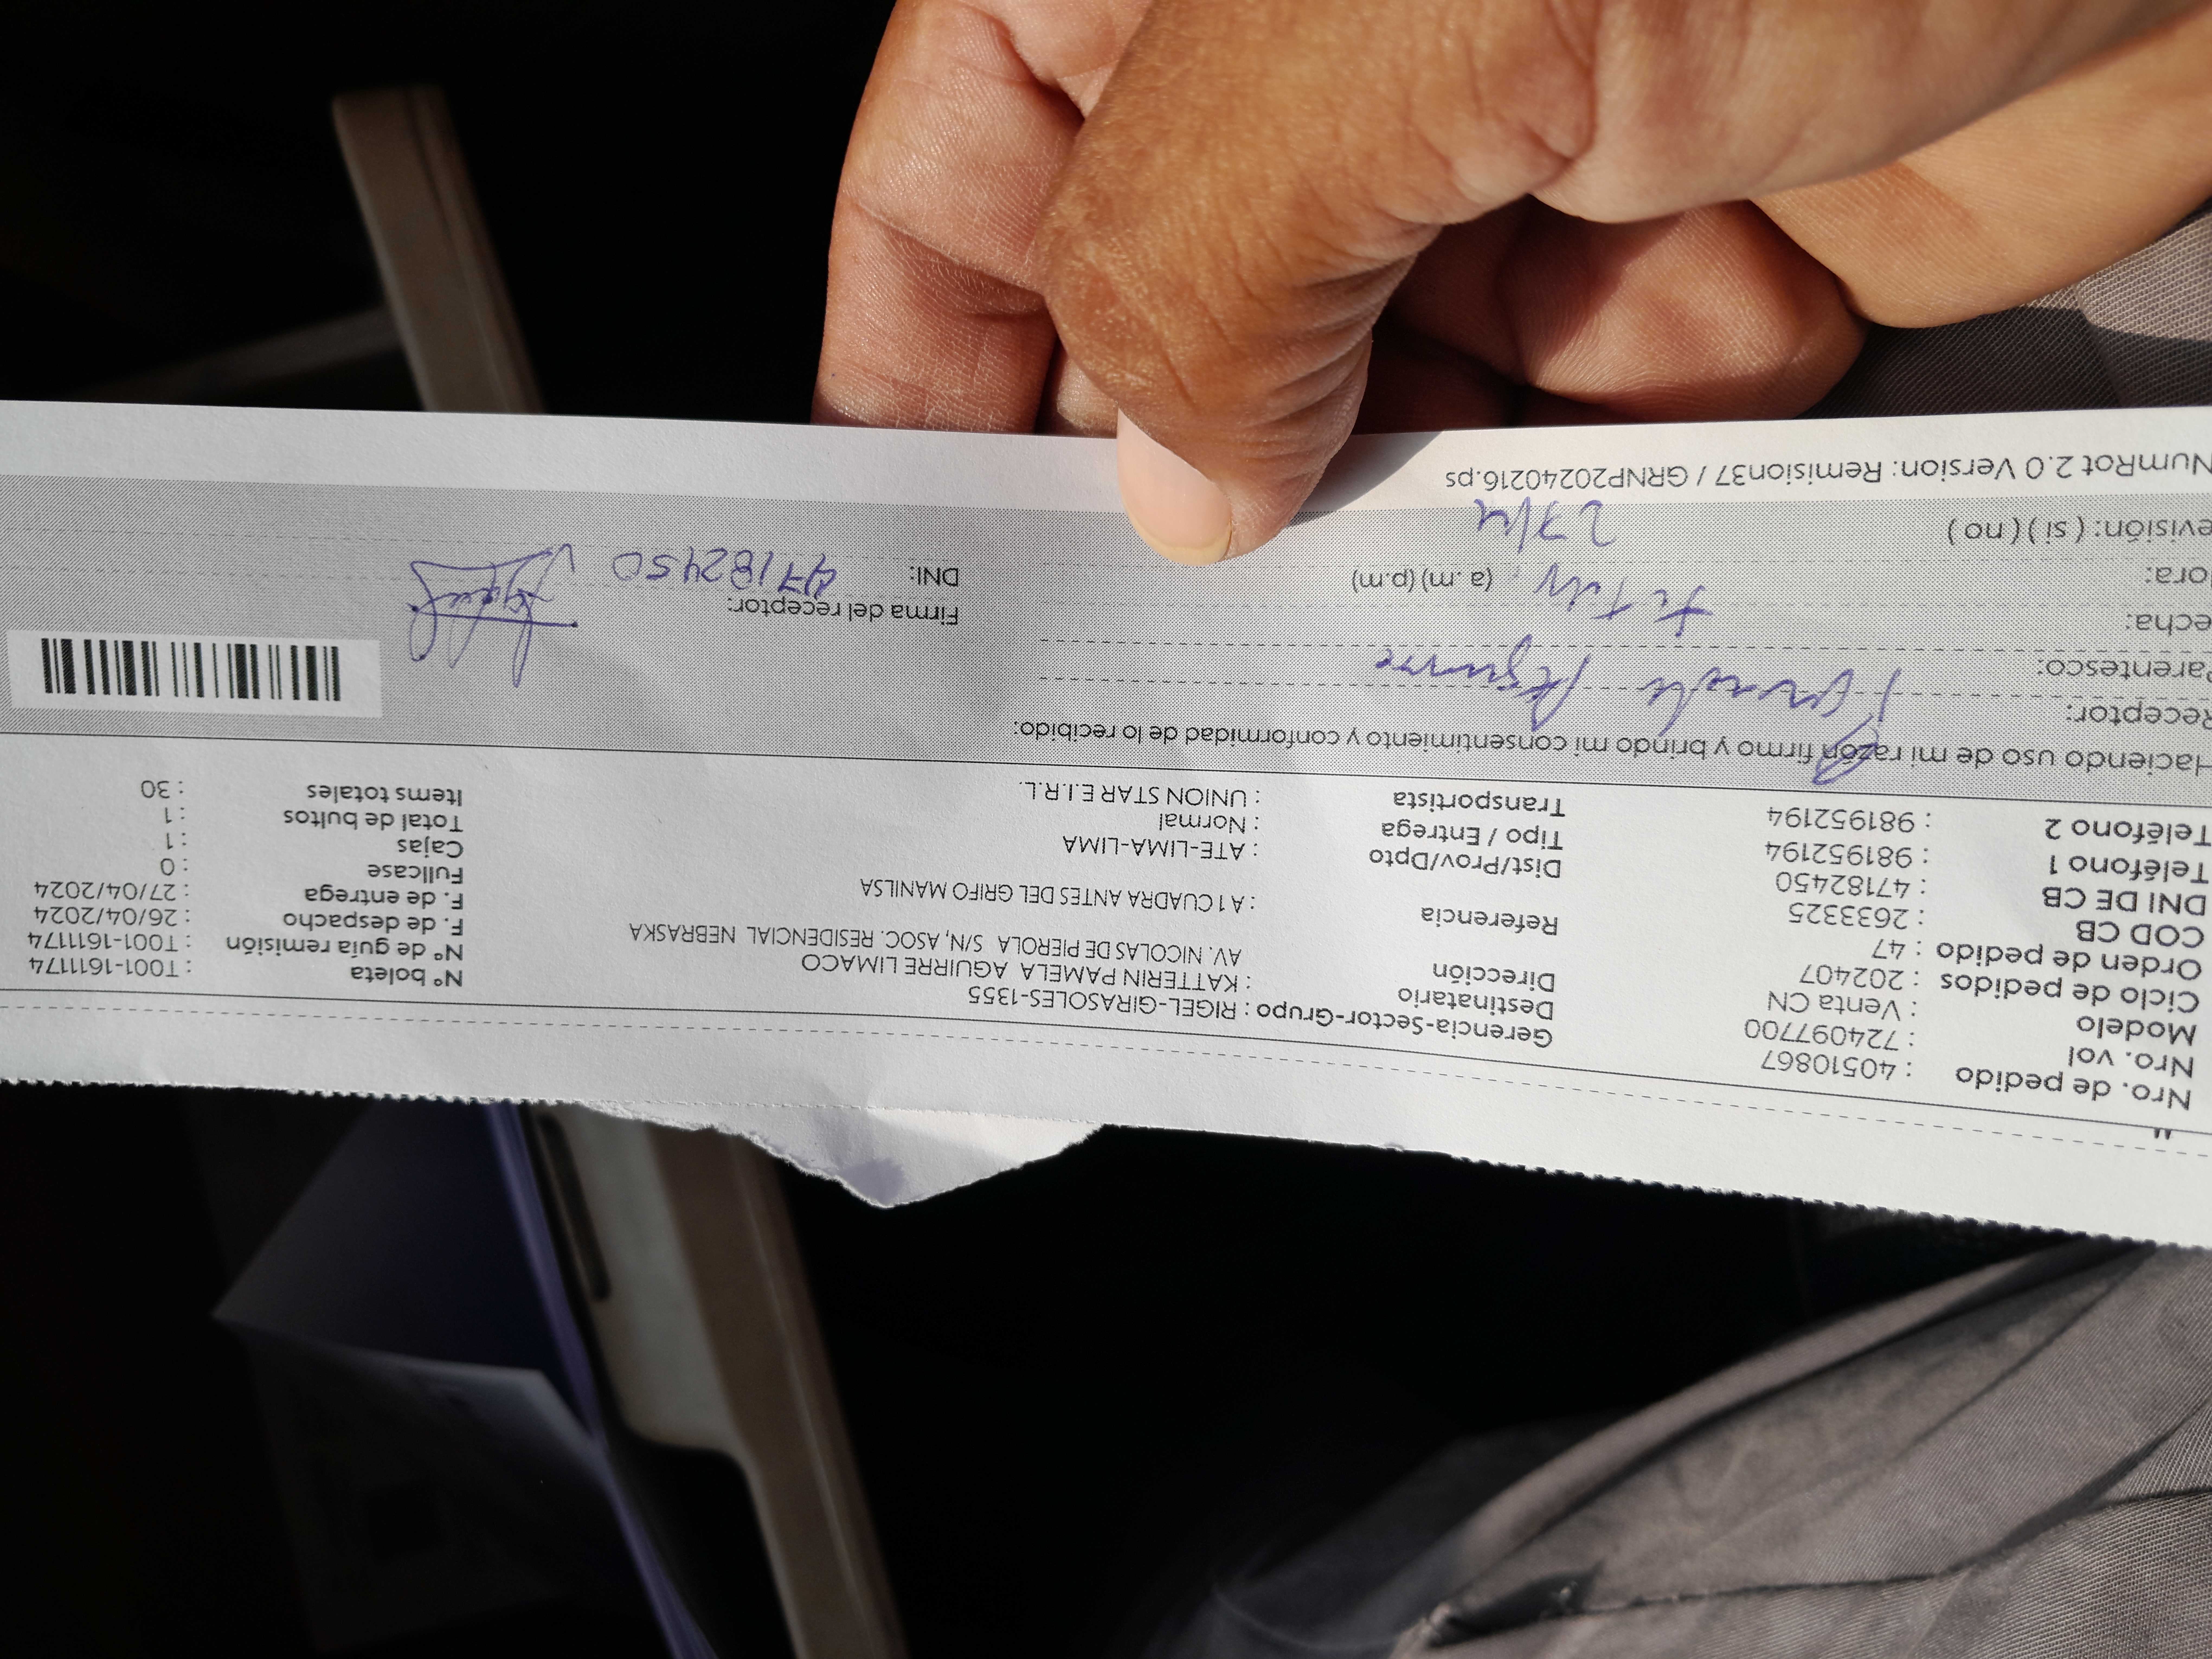 Nro. de pedido : 40510867
Nro. vol : 724097700
Modelo : Venta CN
Ciclo de pedidos : 202407
Orden de pedido : 47
COD CB : 2633325
DNI DE CB : 47182450
Teléfono 1 : 981952194
Teléfono 2 : 981952194
Gerencia-Sector-Grupo : RIGEL-GIRASOLES-1355
Destinatario : KATTERIN PAMELA AGUIRRE LIMACO
Dirección AV. NICOLAS DE PIEROLA S/N, ASOC. RESIDENCIAL NEBRASKA
Referencia : A 1 CUADRA ANTES DEL GRIFO MANILSA
Dist/Prov/Dpto : ATE-LIMA-LIMA
Tipo / Entrega : Normal
Transportista : UNION STAR E.I.R.L.
Nº boleta : T001-1611174
Nº de guía remisión : T001-1611174
F. de despacho : 26/04/2024
F. de entrega : 27/04/2024
Fullcase : 0
Cajas : 1
Total de bultos : 1
Items totales : 30
Haciendo uso de mi razón firmo y brindo mi consentimiento y conformidad de lo recibido:
Receptor: Aguirre
Parentesco:
echa:
ora: (a.m) (p.m)
evisión: ( si ) ( no ) 27/4
Firma del receptor:
DNI: 47182450
NumRot 2.0 Version: Remision37 / GRNP20240216.ps